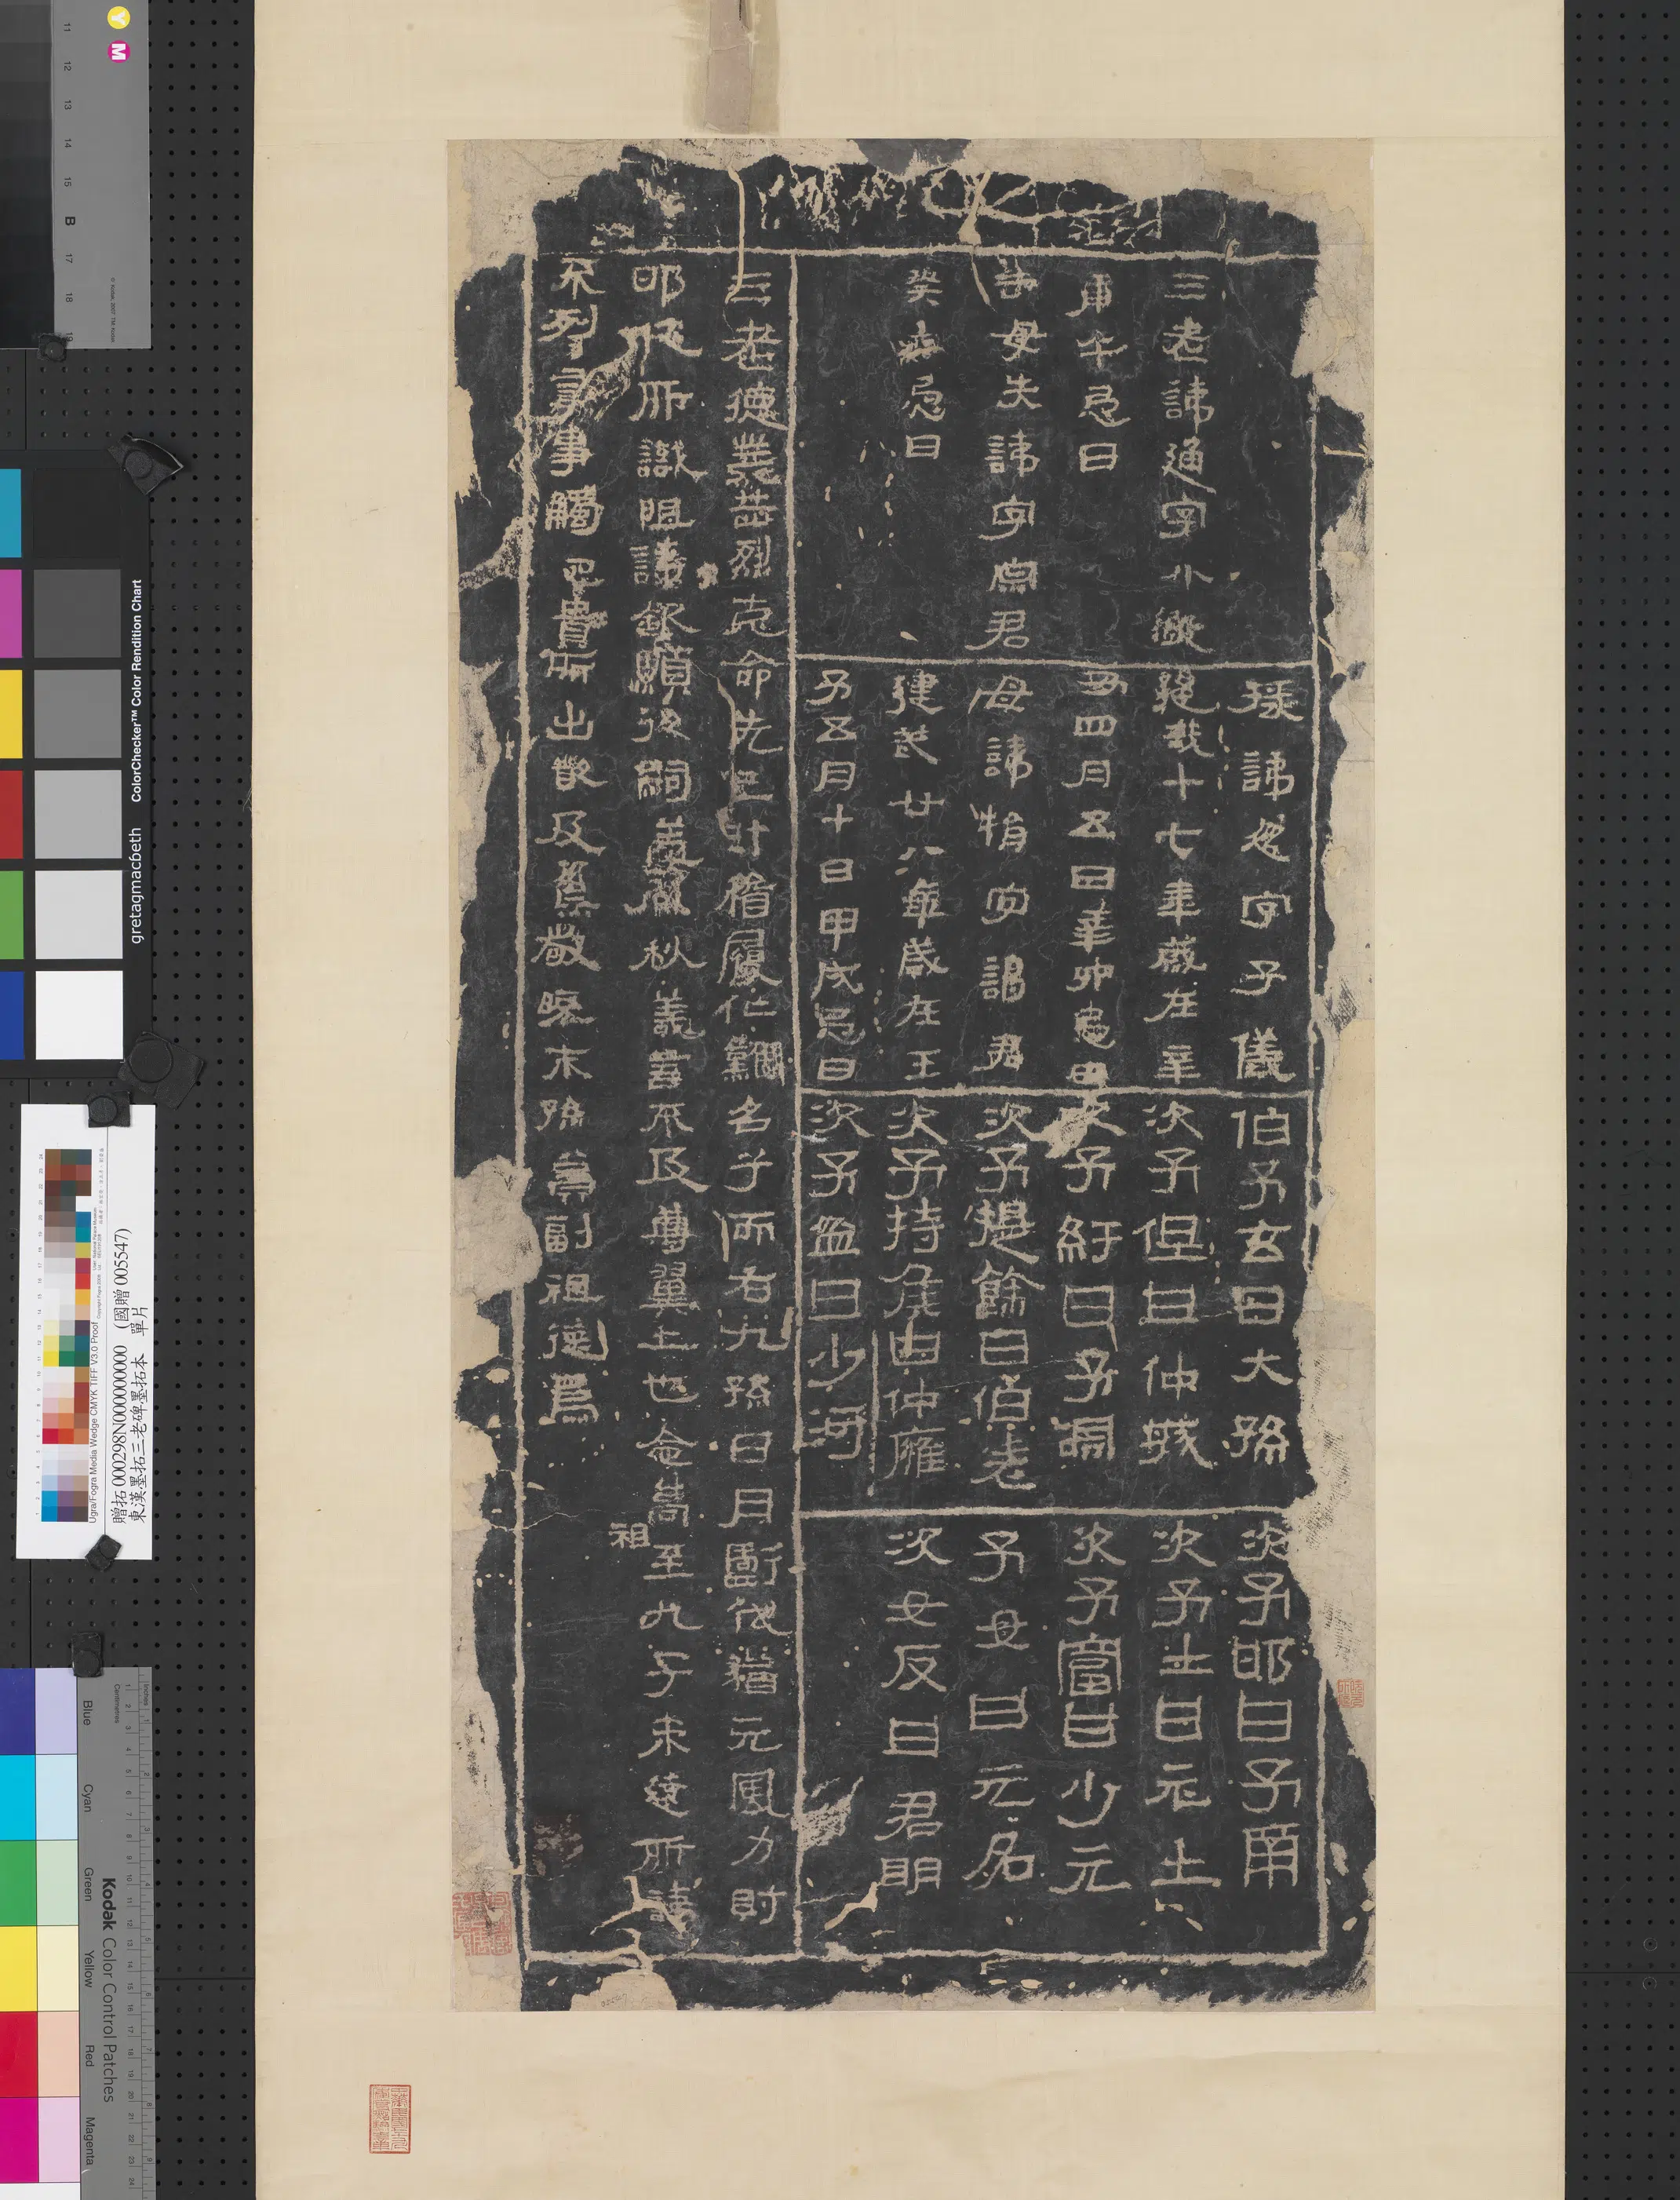 三老諱通字小
庚午忌日
母失諱字君
癸忌日
掾諱忽字子儀
十七年歲在辛
四月五日辛卯忌日
母諱捐字謁君
建武廿八年歲在王
子五月十日甲戌忌日
伯子玄曰大孫
次子但曰仲城
次子紆曰子淵
次子提餘曰伯老
次子持侯曰仲雍
次子盈曰少河
次子邯曰子南
次子士曰元士
次子富曰少元
子女曰元名
次女反曰君明
三老德業赫烈克命先己汁稽履仁難名兮而右九孫日月虧代猶元風力射
邯及所識祖諱欽顯後嗣蓋春秋義言不及尊翼上也念高祖至九子未遠所諱
不列言事觸忌貴所出嚴及焦敬曉末孫冀副祖德焉
贈拓000298N000000000 (國贈005547)
東漢墨拓三老碑墨拓本 單片
Ugra/Fogra Media Wedge CMYK TIFF V3.0 Proof
gretagmacbeth ColorChecker™ Color Rendition Chart
Kodak Color Control Patches
Blue Cyan Green Yellow Red Magenta
Inches
Centimetres
Y M
11 12 13 14 15 B 17 18 19